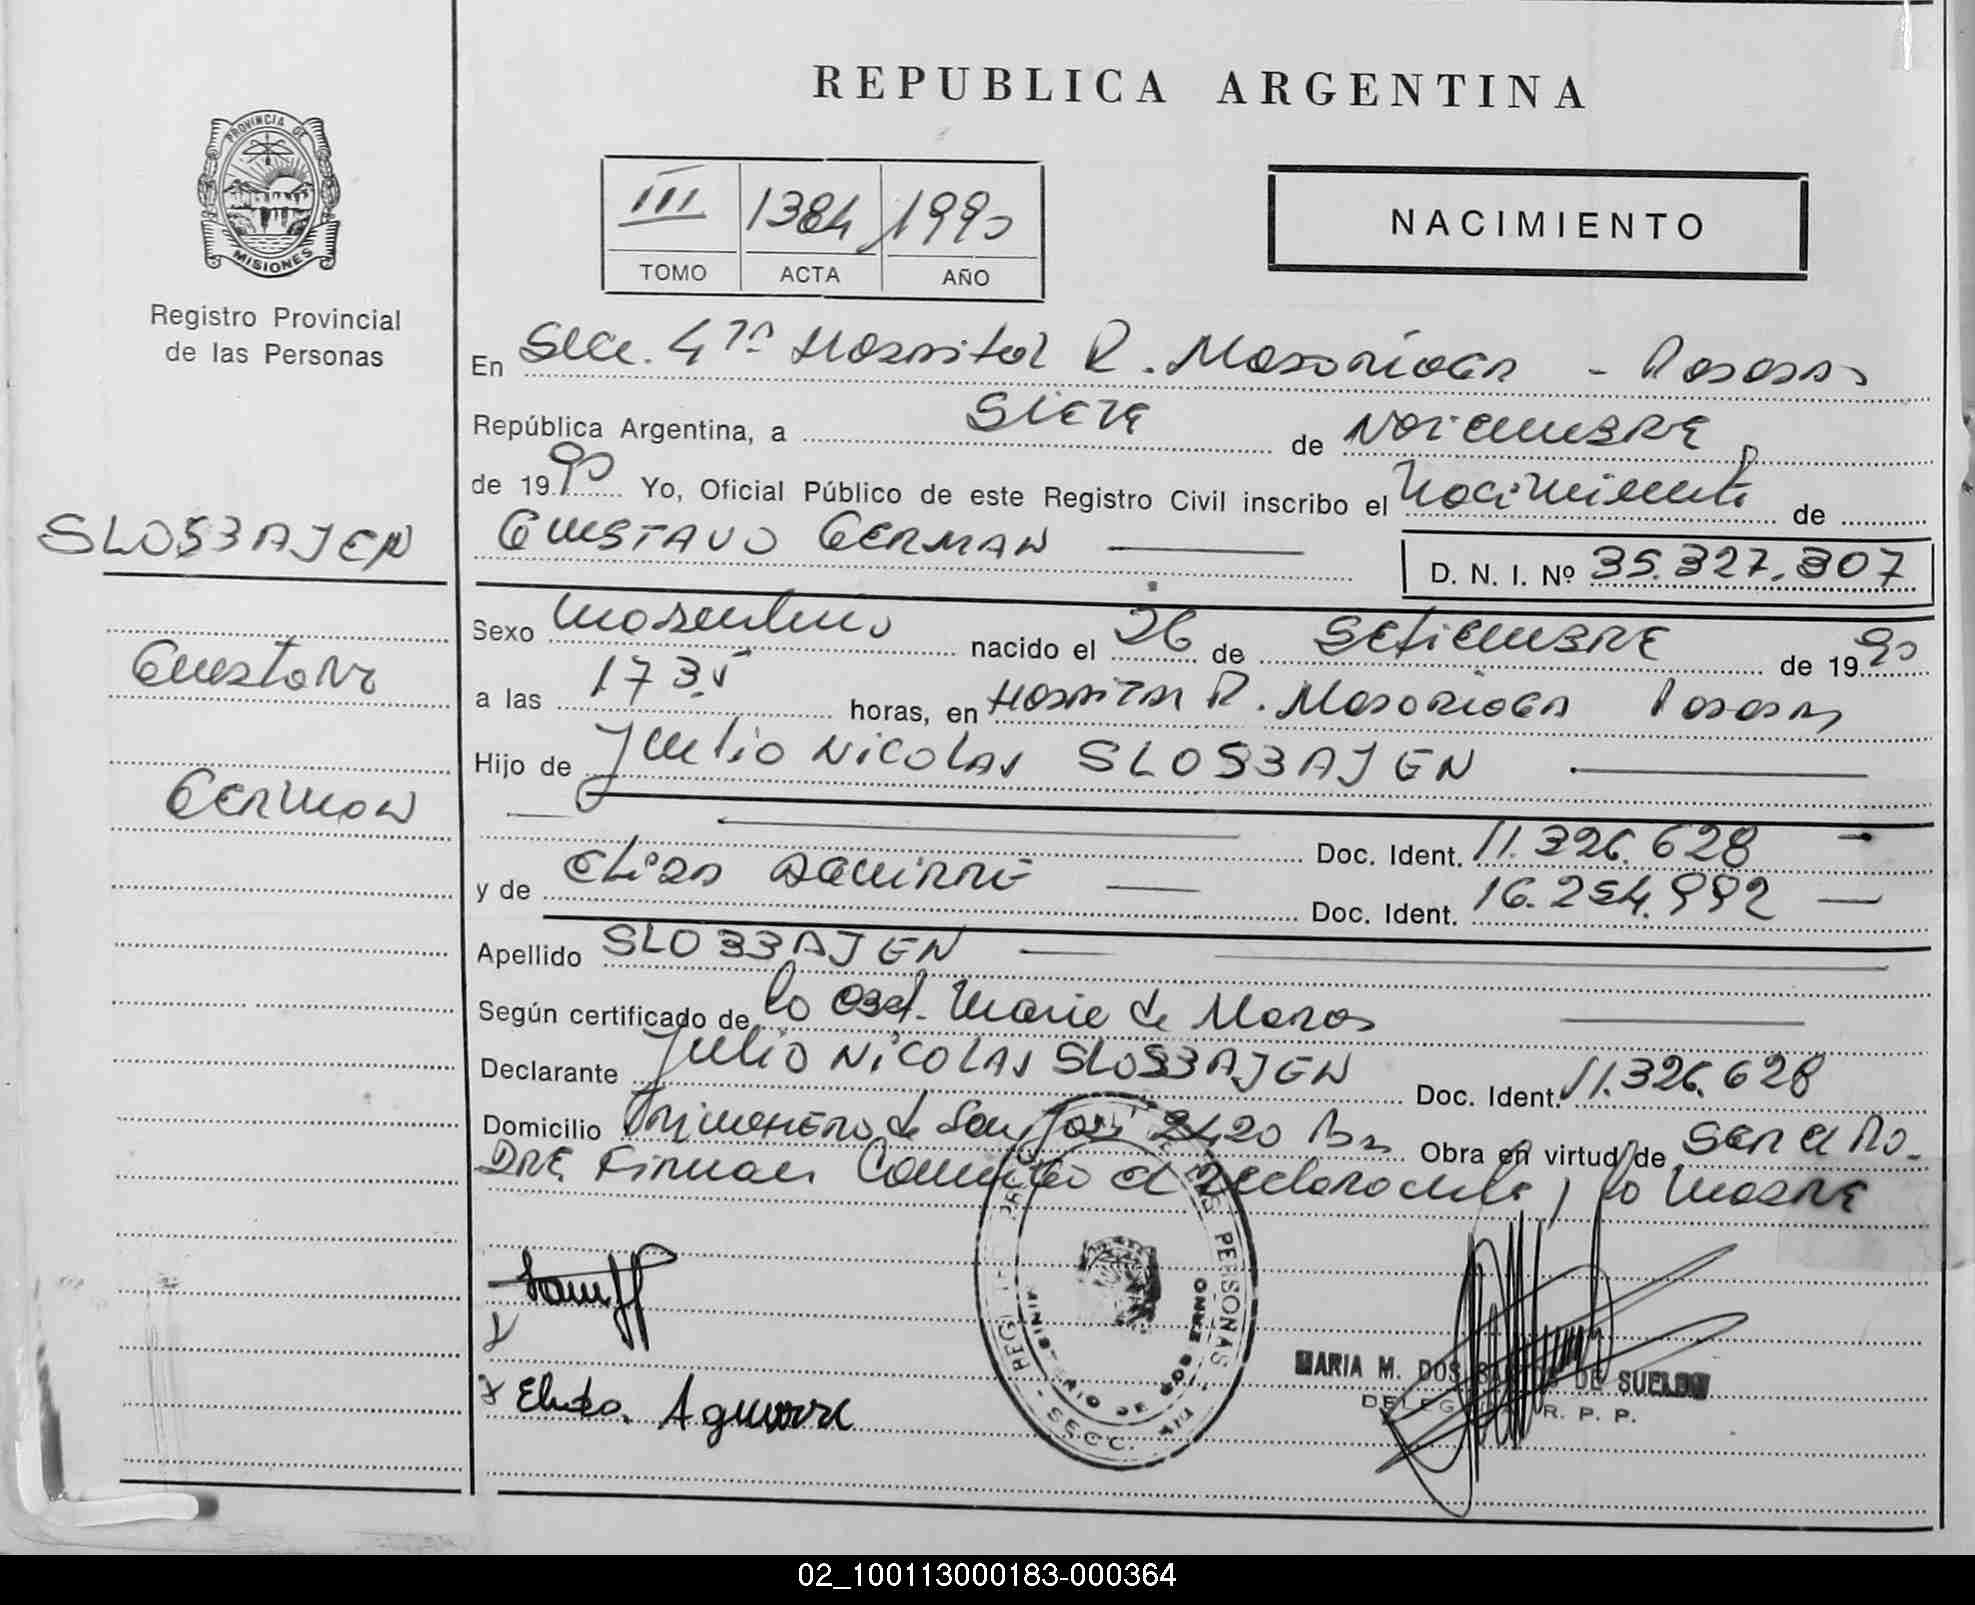 REPUBLICA ARGENTINA
PROVINCIA DE
MISIONES
Registro Provincial
de las Personas
III 1384 1990
TOMO ACTA AÑO
NACIMIENTO
En Secc. 4ta Hospital R. Madariaga - Posadas
República Argentina, a Siete de Noviembre
de 1990 Yo, Oficial Público de este Registro Civil inscribo el Nacimiento de
GUSTAVO GERMAN
D. N. I. Nº 35.327.307
SLOSBAJEN
Gustavo
German
Sexo Masculino nacido el 26 de Setiembre de 1990
a las horas, en Hospital R. Madariaga Posadas
Hijo de Julio NICOLAS SLOSBAJEN
Doc. Ident. 11.326.628
y de Aguirre Doc. Ident. 16.254.992
Apellido SLOSBAJEN
Según certificado de la Obst. Marie de
Declarante Julio NICOLAS SLOSBAJEN Doc. Ident. 11.326.628
Domicilio de San José 2420 Obra en virtud de Ser el Pa-
dre Firman el declarante y la Madre
Aguirre
REGISTRO PERSONAS
MINISTERIO DE GOBIERNO
SECC.
MARIA M. DOS SANTOS DE SUELDO
DELEGADA R. P. P.
02_100113000183-000364